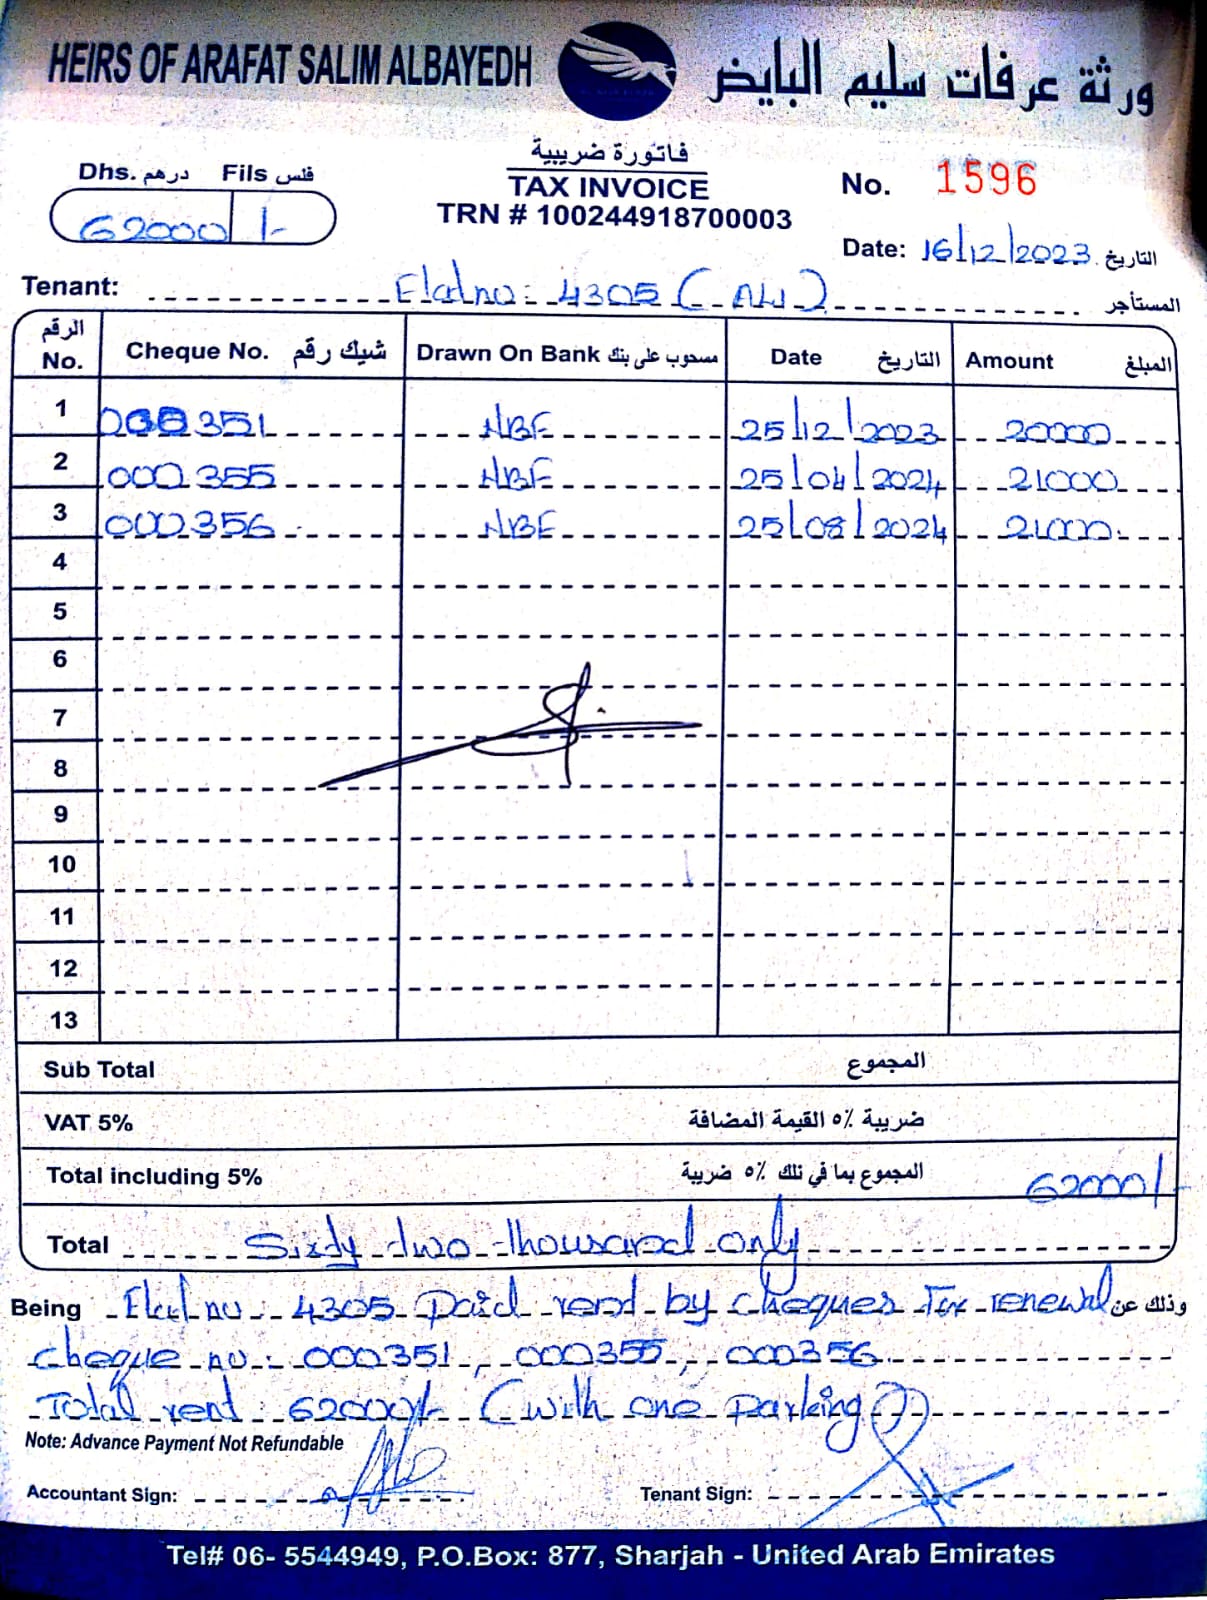 HEIRS OF ARAFAT SALIM ALBAYEDH ورثة عرفات سليم البايض
Dhs. درهم Fils فلس
62000 /-
فاتورة ضريبية
TAX INVOICE
TRN # 100244918700003
No. 1596
Date: 16/12/2023 التاريخ
Tenant: Flat no: 4305 (ALI) المستأجر
الرقم No. Cheque No. شيك رقم Drawn On Bank مسحوب على بنك Date التاريخ Amount المبلغ
1 000351 NBF 25/12/2023 20000
2 000355 NBF 25/04/2024 21000
3 000356 NBF 25/08/2024 21000
4
5
6
7
8
9
10
11
12
13
Sub Total المجموع
VAT 5% ضريبة ٥٪ القيمة المضافة
Total including 5% المجموع بما في تلك ٥٪ ضريبة 62000/-
Total Sixty two thousand only
Being Flat no 4305 Paid rent by cheques For renewal وذلك عن
cheque no: 000351, 000355, 000356
Total rent: 62000/- (with one Parking)
Note: Advance Payment Not Refundable
Accountant Sign: Tenant Sign:
Tel# 06- 5544949, P.O.Box: 877, Sharjah - United Arab Emirates